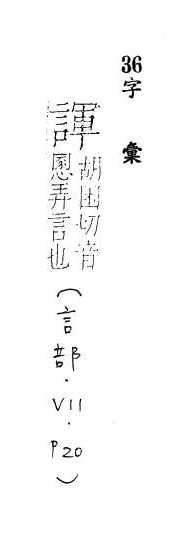 36字彙
諢 胡困切音
慁弄言也(言部·VII·P20)